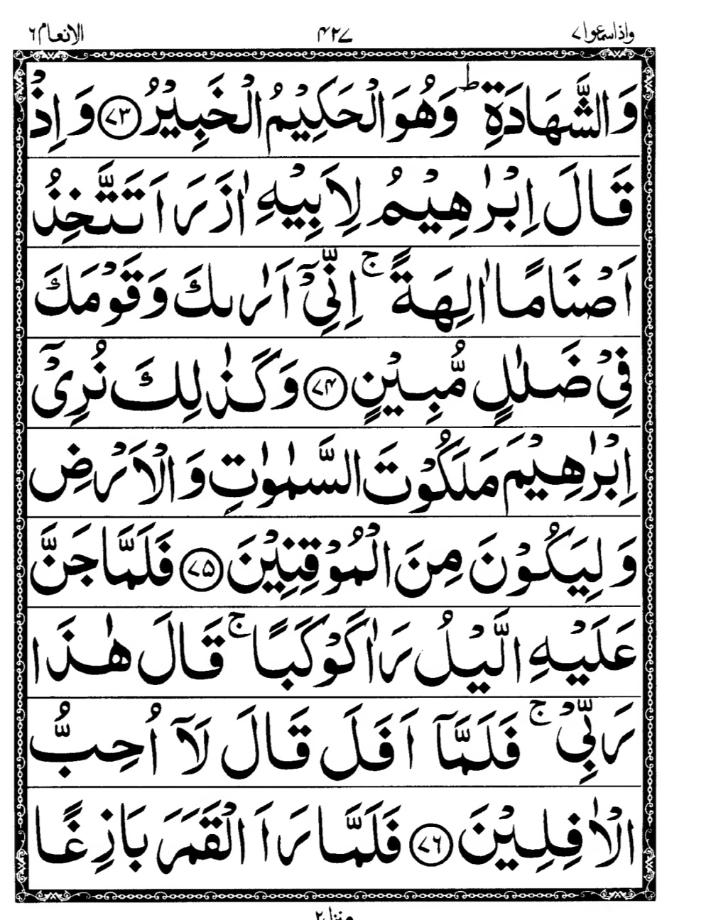 واذاسمعوا۷ ۴۲۷ الانعام۶
وَالشَّهَادَةِ ؕ وَهُوَ الْحَكِيْمُ الْخَبِيْرُ ﴿۷۳﴾ وَ اِذْ
قَالَ اِبْرٰهِيْمُ لِاَبِيْهِ اٰزَرَ اَتَتَّخِذُ
اَصْنَامًا اٰلِهَةً ۚ اِنِّيْۤ اَرٰىكَ وَقَوْمَكَ
فِيْ ضَلٰلٍ مُّبِيْنٍ ﴿۷۴﴾ وَكَذٰلِكَ نُرِيْۤ
اِبْرٰهِيْمَ مَلَكُوْتَ السَّمٰوٰتِ وَالْاَرْضِ
وَ لِيَكُوْنَ مِنَ الْمُوْقِنِيْنَ ﴿۷۵﴾ فَلَمَّا جَنَّ
عَلَيْهِ الَّيْلُ رَاٰ كَوْكَبًا ۚ قَالَ هٰذَا
رَبِّيْ ۚ فَلَمَّاۤ اَفَلَ قَالَ لَاۤ اُحِبُّ
الْاٰفِلِيْنَ ﴿۷۶﴾ فَلَمَّا رَاَ الْقَمَرَ بَازِغًا
منزل۲